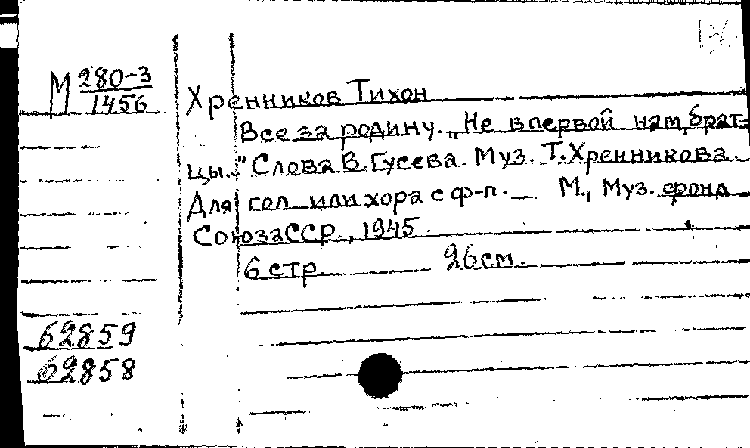 М 280-3
1456
Хренников Тихон
Все за родину. „Не впервой нам, брат-
цы." Слова В. Гусева. Муз. Т. Хренникова
Для гол. или хора с ф-п. — М., Муз. фонд
Союза ССР, 1945.
6 стр. 26 см.
62859
62858